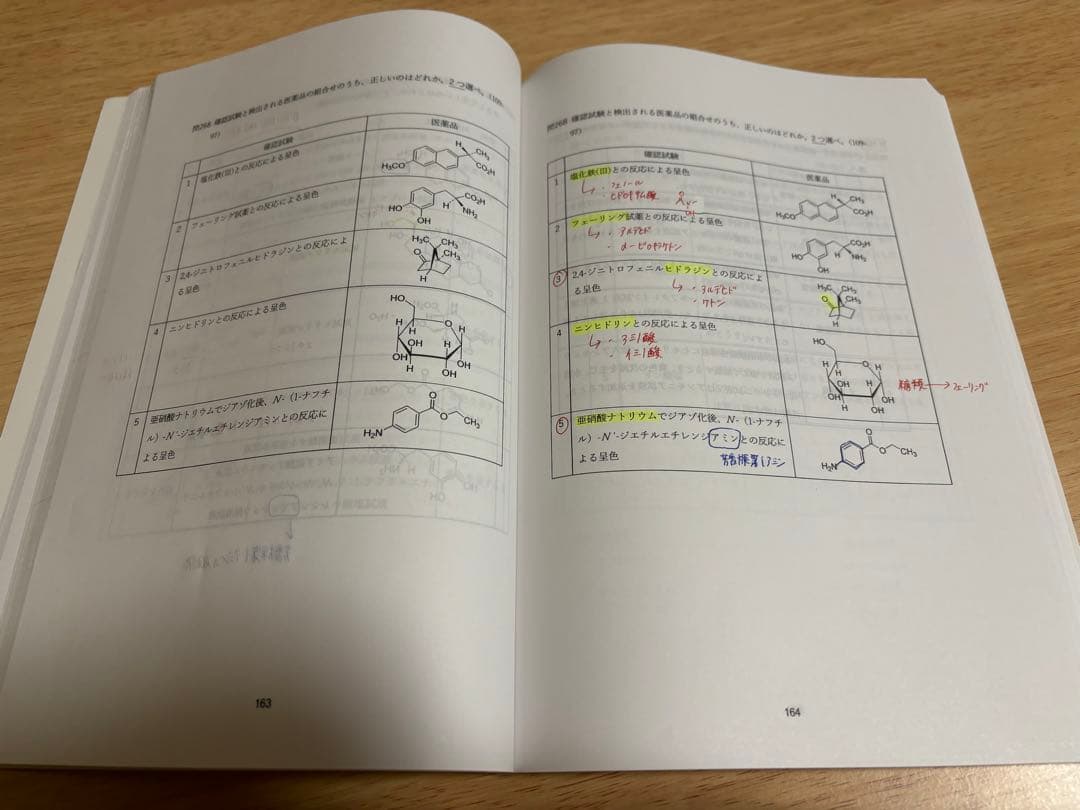 問268 確認試験と検出される医薬品の組合せのうち、正しいのはどれか。2つ選べ。(109-
97)
確認試験
医薬品
1
塩化鉄(III)との反応による呈色
H₃CO
H
CH₃
CO₂H
2
フェーリング試薬との反応による呈色
HO
OH
H
CO₂H
NH₂
3
2,4-ジニトロフェニルヒドラジンとの反応によ
る呈色
H₃C
CH₃
CH₃
O
H
4
ニンヒドリンとの反応による呈色
HO
H
O
H
H
OH
H
OH
H
OH
OH
5
亜硝酸ナトリウムでジアゾ化後、N-（1-ナフチ
ル）-N′-ジエチルエチレンジアミンとの反応に
よる呈色
H₂N
O
O
CH₃
163
問268 確認試験と検出される医薬品の組合せのうち、正しいのはどれか。2つ選べ。(109-
97)
確認試験
医薬品
1
塩化鉄(III)との反応による呈色
・フェノール
・ヒドロキサム酸
H₃CO
H
CH₃
CO₂H
2
フェーリング試薬との反応による呈色
・アルデヒド
・α-ヒドロキシケトン
HO
OH
H
CO₂H
NH₂
3
2,4-ジニトロフェニルヒドラジンとの反応によ
る呈色
・アルデヒド
・ケトン
H₃C
CH₃
CH₃
O
H
4
ニンヒドリンとの反応による呈色
・アミノ酸
・イミノ酸
HO
H
O
H
H
OH
H
OH
H
OH
OH
糖類→フェーリング
5
亜硝酸ナトリウムでジアゾ化後、N-（1-ナフチ
ル）-N′-ジエチルエチレンジアミンとの反応に
よる呈色
芳香族第1アミン
H₂N
O
O
CH₃
164